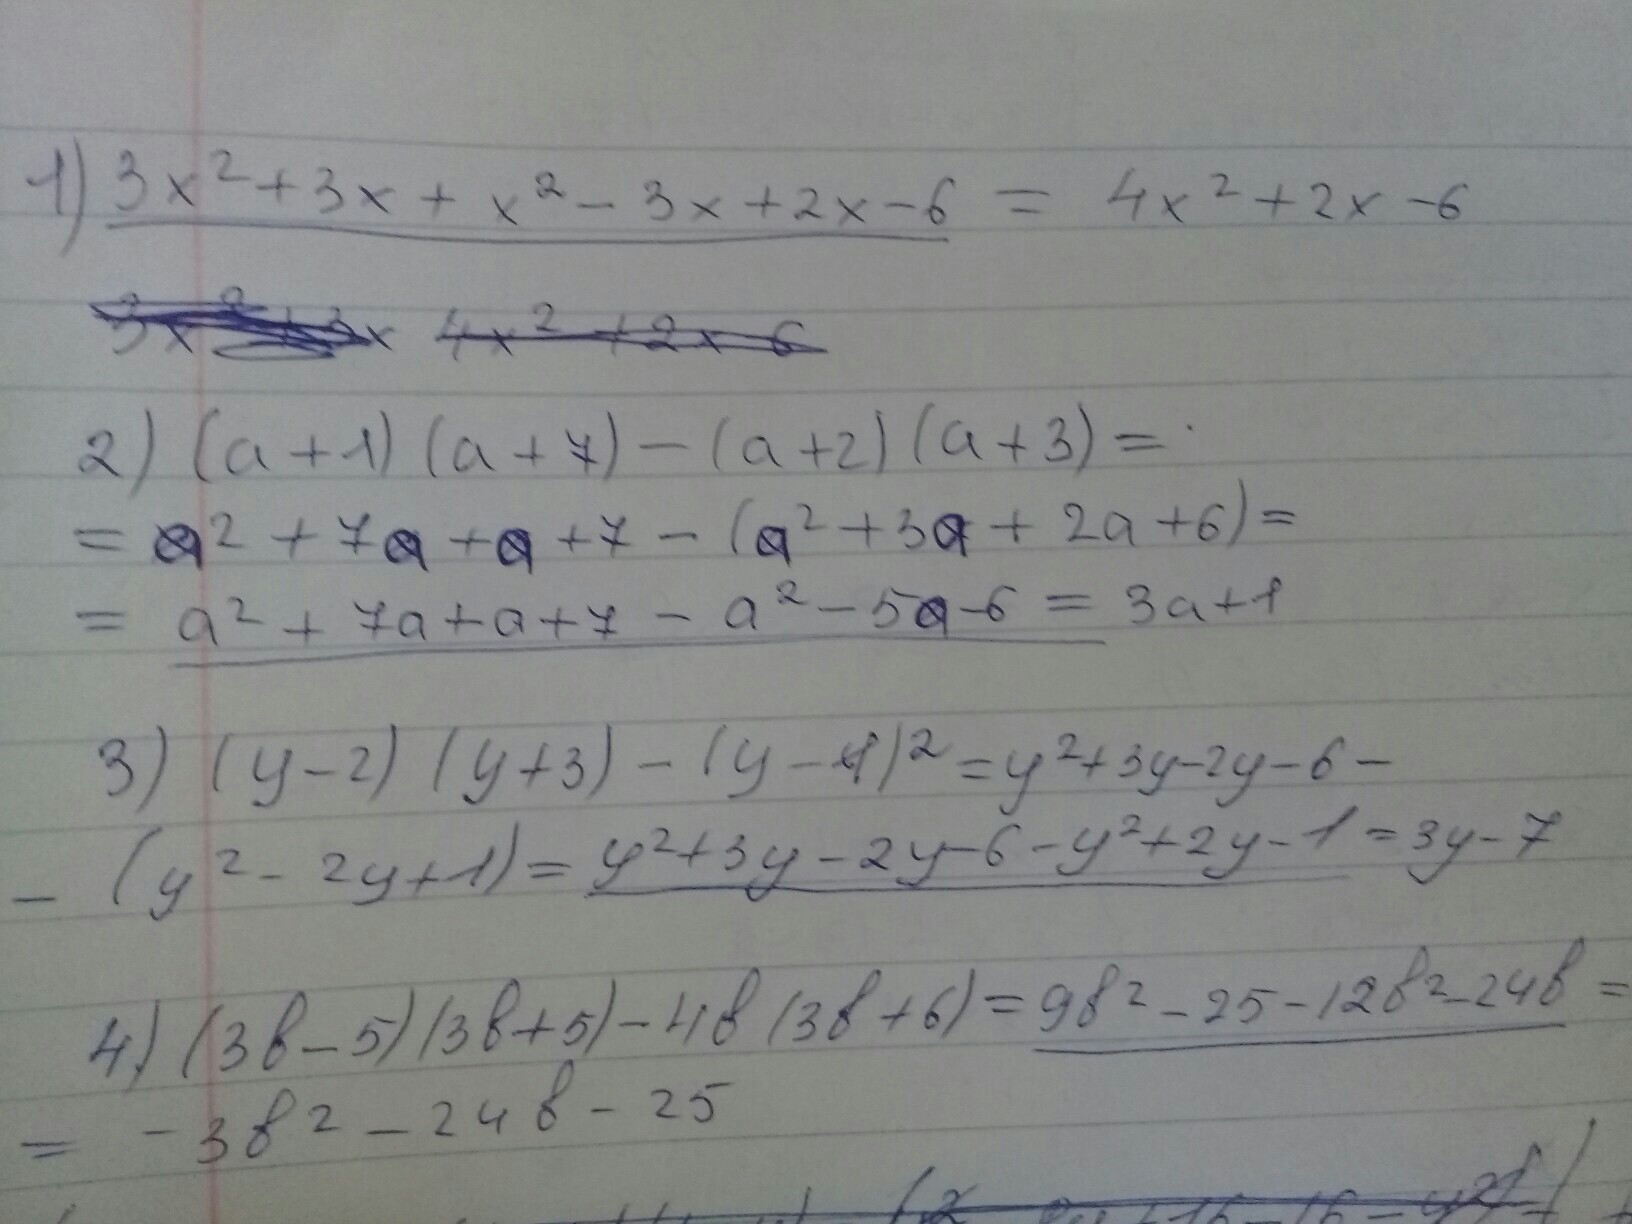 1) 3x²+3x+x²-3x+2x-6 = 4x²+2x-6
3x²+3x 4x²+2x-6
2) (a+1)(a+7)-(a+2)(a+3)=
= a²+7a+a+7-(a²+3a+2a+6)=
= a²+7a+a+7-a²-5a-6 = 3a+1
3) (y-2)(y+3)-(y-1)²=y²+3y-2y-6-
-(y²-2y+1)=y²+3y-2y-6-y²+2y-1=3y-7
4) (3в-5)(3в+5)-4в(3в+6)=9в²-25-12в²-24в=
= -3в²-24в-25